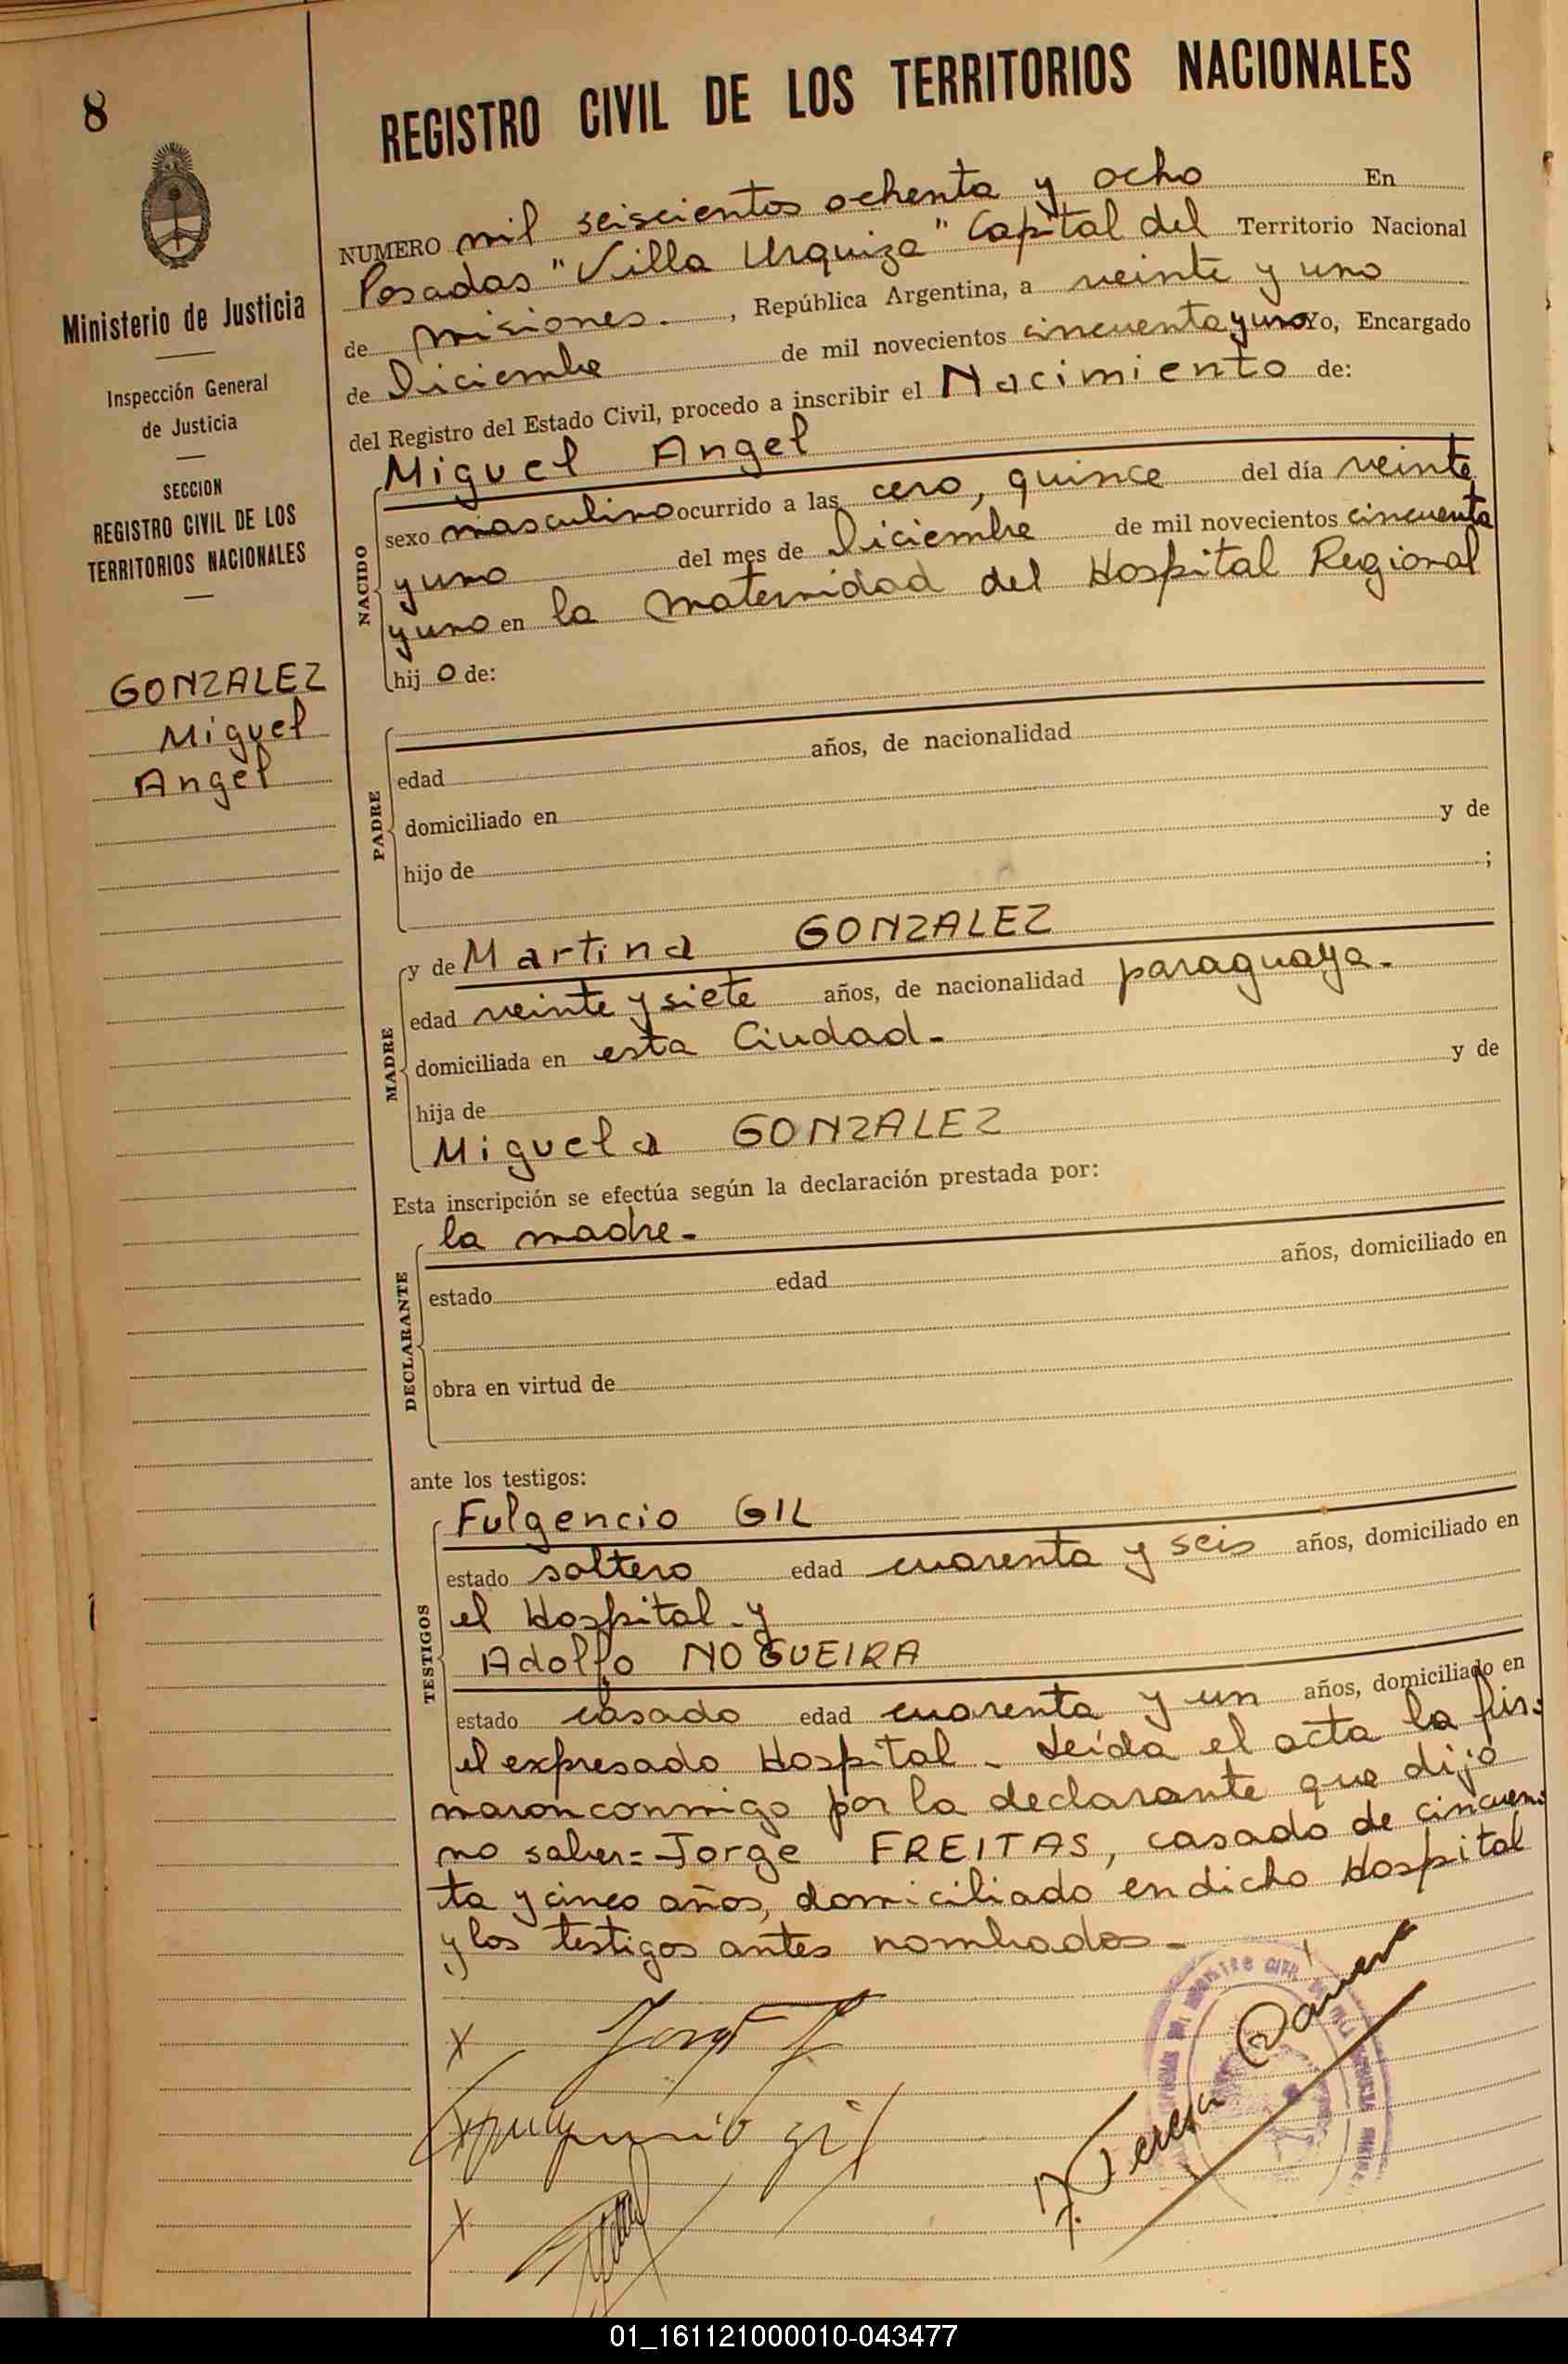 8
Ministerio de Justicia
Inspección General
de Justicia
SECCION
REGISTRO CIVIL DE LOS
TERRITORIOS NACIONALES
GONZALEZ
Miguel
Angel
REGISTRO CIVIL DE LOS TERRITORIOS NACIONALES
NUMERO mil seiscientos ochenta y ocho En
Posadas "Villa Urquiza" Capital del Territorio Nacional
de Misiones.-, República Argentina, a veinte y uno
de Diciembre de mil novecientos cincuenta y uno Yo, Encargado
del Registro del Estado Civil, procedo a inscribir el Nacimiento de:
NACIDO
Miguel Angel
sexo masculino ocurrido a las cero, quince del día veinte
y uno del mes de Diciembre de mil novecientos cincuenta
y uno en la Maternidad del Hospital Regional
hij o de:
PADRE
edad años, de nacionalidad
domiciliado en
hijo de y de
;
MADRE
y de Martina GONZALEZ
edad veinte y siete años, de nacionalidad paraguaya.-
domiciliada en esta Ciudad.-
hija de y de
Miguela GONZALEZ
Esta inscripción se efectúa según la declaración prestada por:
DECLARANTE
la madre.-
estado edad años, domiciliado en
obra en virtud de
ante los testigos:
TESTIGOS
Fulgencio GIL
estado soltero edad cuarenta y seis años, domiciliado en
el Hospital y
Adolfo NOGUEIRA
estado casado edad cuarenta y un años, domiciliado en
el expresado Hospital.- Leída el acta la fir=
maron conmigo por la declarante que dijo
no saber=Jorge FREITAS, casado de cincuen=
ta y cinco años, domiciliado en dicho Hospital
y los testigos antes nombrados.-
x Jorge F
x gil
x
Teresa
01_161121000010-043477